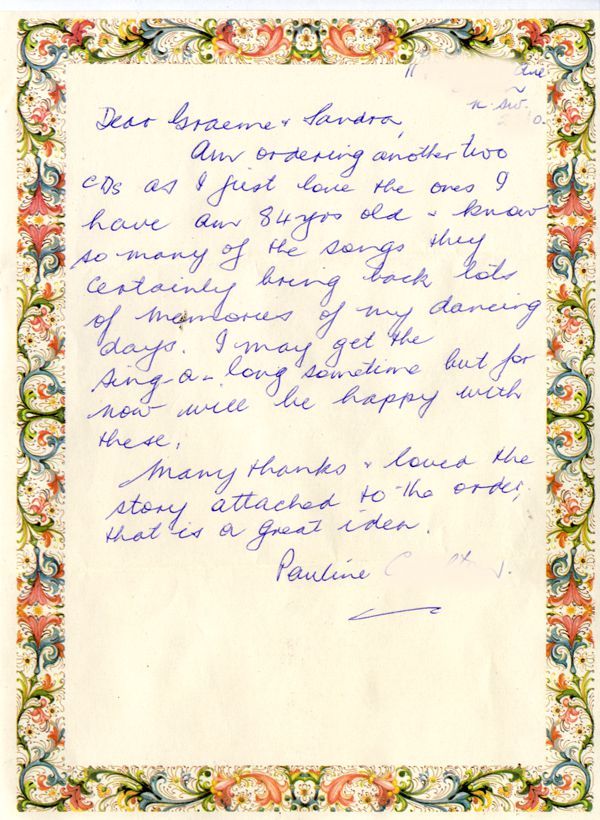 Ave
N. SW.
Dear Graeme & Sandra,
Am ordering another two
CDs as I just love the ones I
have am 84 yrs old & know
so many of the songs they
certainly bring back lots
of memories of my dancing
days. I may get the
sing-a-long sometime but for
now will be happy with
these.
Many thanks & loved the
story attached to the order,
that is a great idea.
Pauline